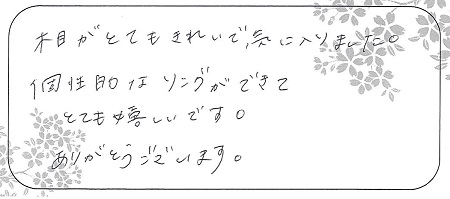 木目がとてもきれいで、気に入りました。
個性的なリングができて
とても嬉しいです。
ありがとうございます。